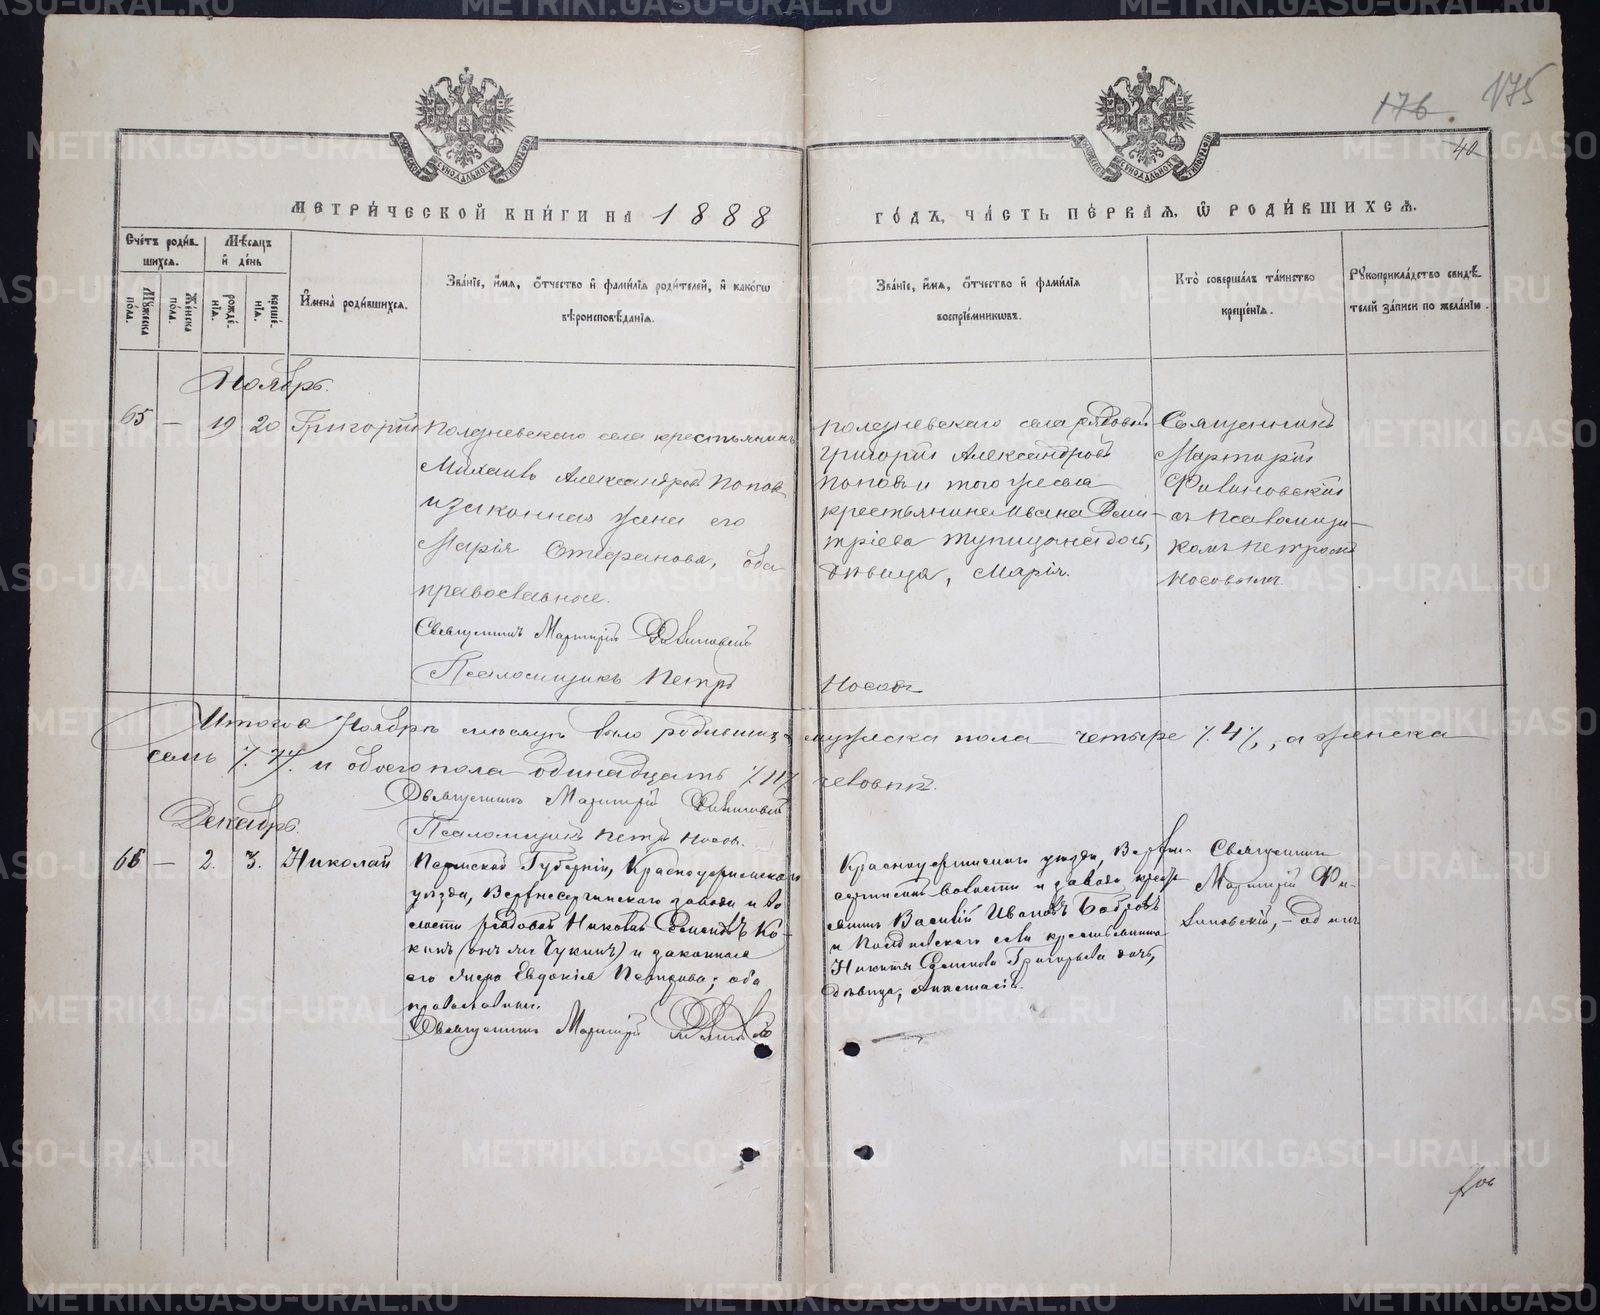 176 175
40
МЕТРИ́ЧЕСКОЙ КНИ́ГИ НА 1888 ГО́ДЪ, ЧА́СТЬ ПЕ́РВАЯ, Ѡ РОДИ́ВШИХСЯ.
Сче́тъ роди́в-
шихся.
Му́жеска пола.
Же́нска пола.
Мѣ́сяцъ
и҆ де́нь
рожде́нїя.
креще́нїя.
И҆мена̀ роди́вшихся.
Зва́нїе, и҆́мя, ѻ҆́тчество и҆ фами́лїя роди́телей, и҆ како́гѡ
вѣроисповѣ́данїя.
Зва́нїе, и҆́мя, ѻ҆́тчество и҆ фами́лїя
воспрїе́мниковъ.
Кто̀ соверша́лъ та́инство
креще́нїя.
Рꙋкоприкла́дство свидѣ́-
телей за́писи по жела́нїю.
Ноябрь.
65 — 19 20 Григорій
Полдневскаго села крестьянинъ
Михаилъ Александровъ Поповъ
и законная жена его
Марія Стефанова, оба
православные.
Священникъ Мартирій
Псаломщикъ Петръ Носовъ
Полдневскаго села рядовый
Григорій Александровъ
Поповъ и того же села
крестьянина Ивана Дми-
тріева дочь,
дѣвица, Марія.
Священникъ
Мартирій
съ псаломщи-
комъ Петромъ
Носовымъ.
Итого въ Ноябрѣ мѣсяцѣ было родившихся мужеска пола четыре /.4/., а женска
семь /.7/. и обоего пола одинадцать /.11/. человѣкъ.
Священникъ Мартирій
Псаломщикъ Петръ Носовъ.
Декабрь.
66 — 2. 3. Николай
Пермской Губерніи, Красноуфимскаго
уѣзда, Верхнесергинскаго завода и во-
лости рядовой Николай Ко-
кинъ (онъ же Чукинъ) и законная
его жена Евдокія Петрова; оба
православные.
Священникъ Мартирій
Красноуфимскаго уѣзда, Верхне-
сергинской волости и завода кресть-
янинъ Василій Ивановъ Бобровъ
и Полдневскаго села крестьянина
Никиты Григорьева дочь,
дѣвица, Анастасія.
Священникъ
Мартирій
— одинъ